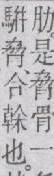 肋是脅骨一
駢脅合榦也